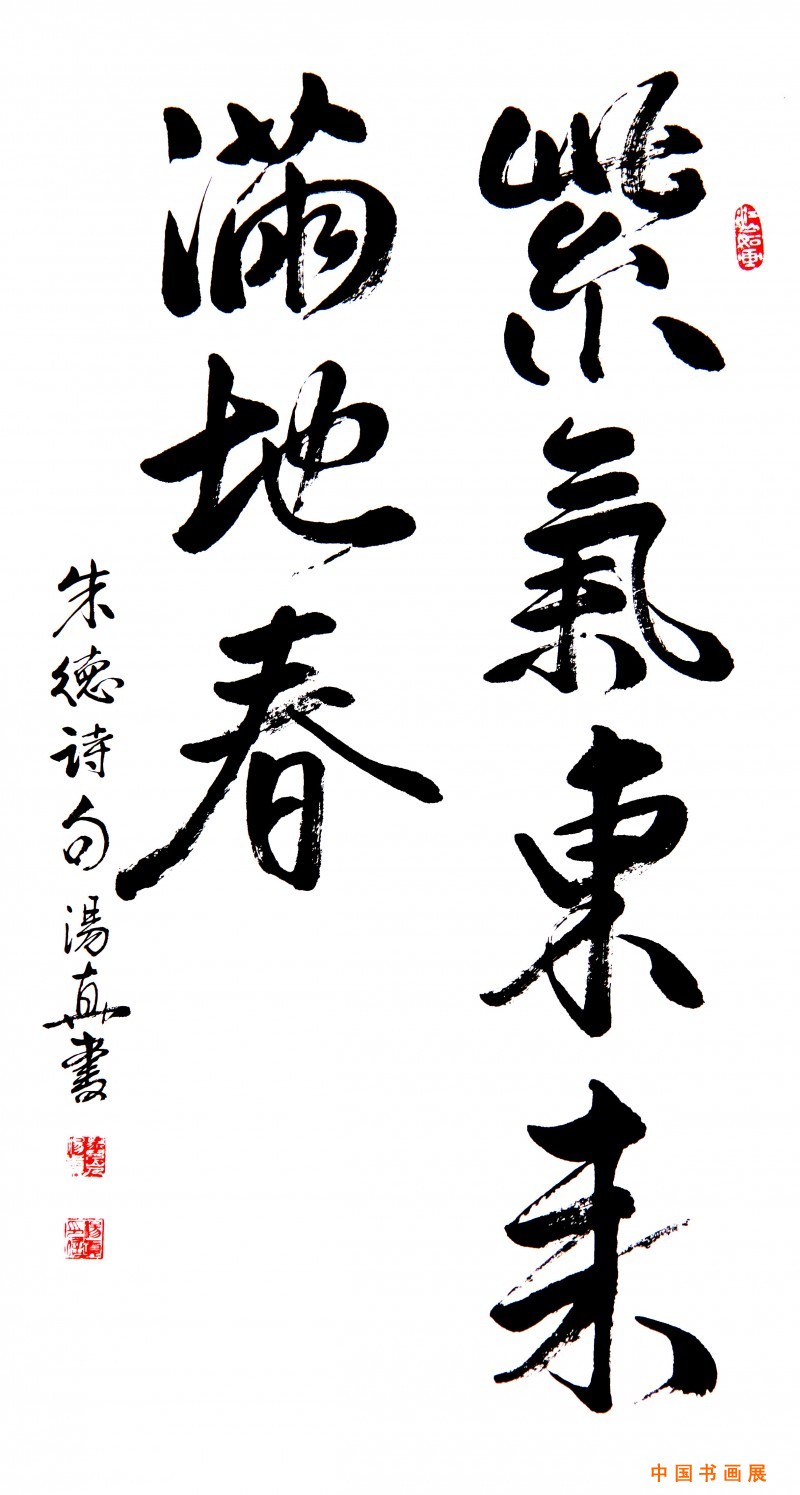 紫氣東来
滿地春
朱德詩句湯真書
中国书画展